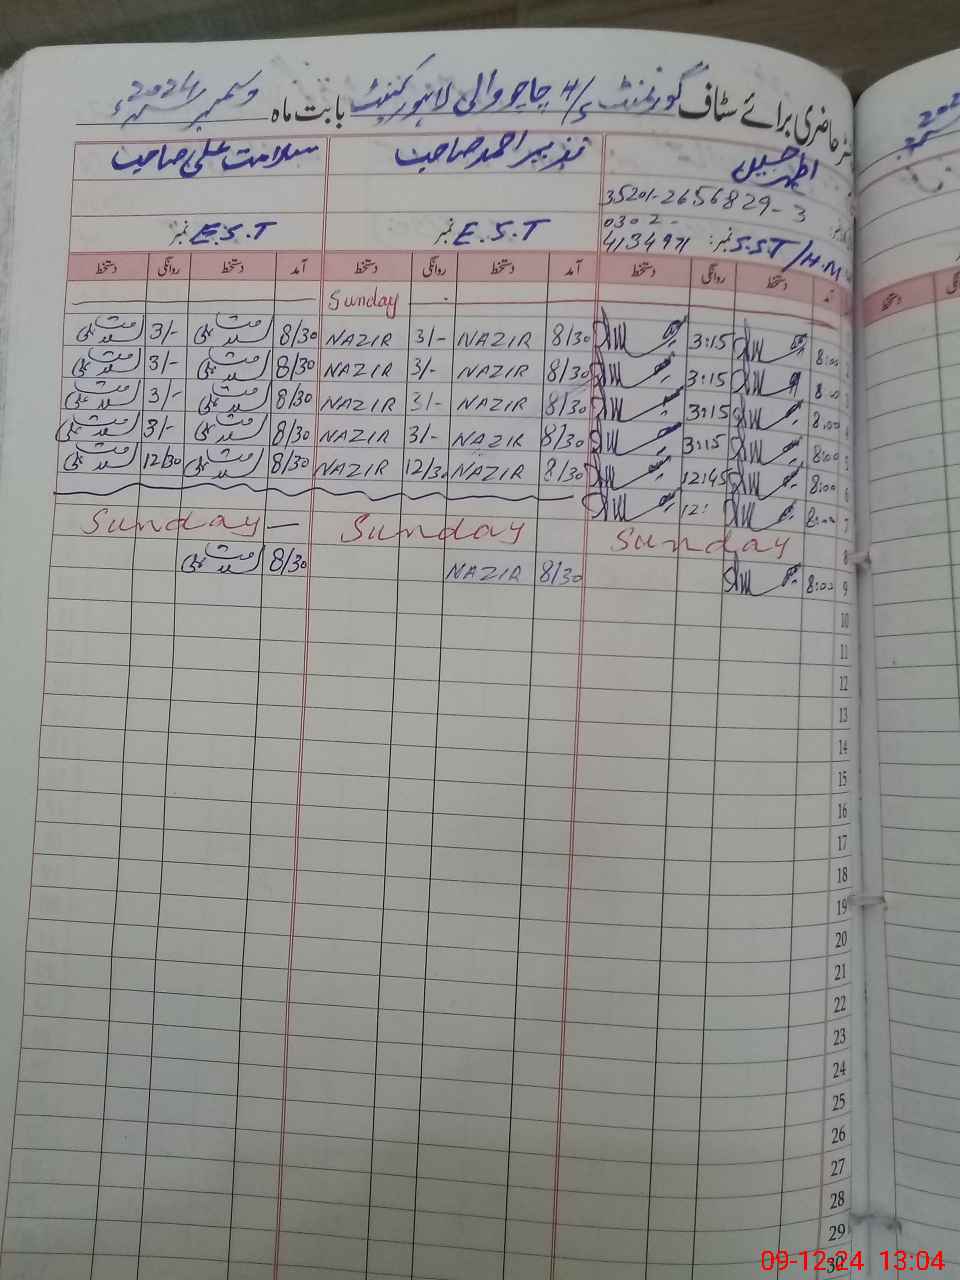 رجسٹر حاضری برائے سٹاف گورنمنٹ H/S چاچو والی لاہور کینٹ بابت ماہ دسمبر 2024ء
اطہر حسین نذیر احمد صاحب سلامت علی صاحب
35201-2656829-3
0302-
4134971 نمبر: S.S.T/H.M E.S.T نمبر E.S.T نمبر
آمد دستخط روانگی دستخط آمد دستخط روانگی دستخط آمد دستخط روانگی دستخط
Sunday
2 8:00 3:15 8/30 NAZIR 3/- NAZIR 8/30 سلامت علی 3/- سلامت علی
3 8:00 3:15 8/30 NAZIR 3/- NAZIR 8/30 سلامت علی 3/- سلامت علی
4 8:00 3:15 8/30 NAZIR 3/- NAZIR 8/30 سلامت علی 3/- سلامت علی
5 8:00 3:15 8/30 NAZIR 3/- NAZIR 8/30 سلامت علی 3/- سلامت علی
6 8:00 12:45 8/30 NAZIR 12/30 NAZIR 8/30 سلامت علی 12/30 سلامت علی
7 8:00 12:
8 Sunday Sunday Sunday
9 8:00 8/30 NAZIR 8/30 سلامت علی
10
11
12
13
14
15
16
17
18
19
20
21
22
23
24
25
26
27
28
29
30
09-12-24 13:04